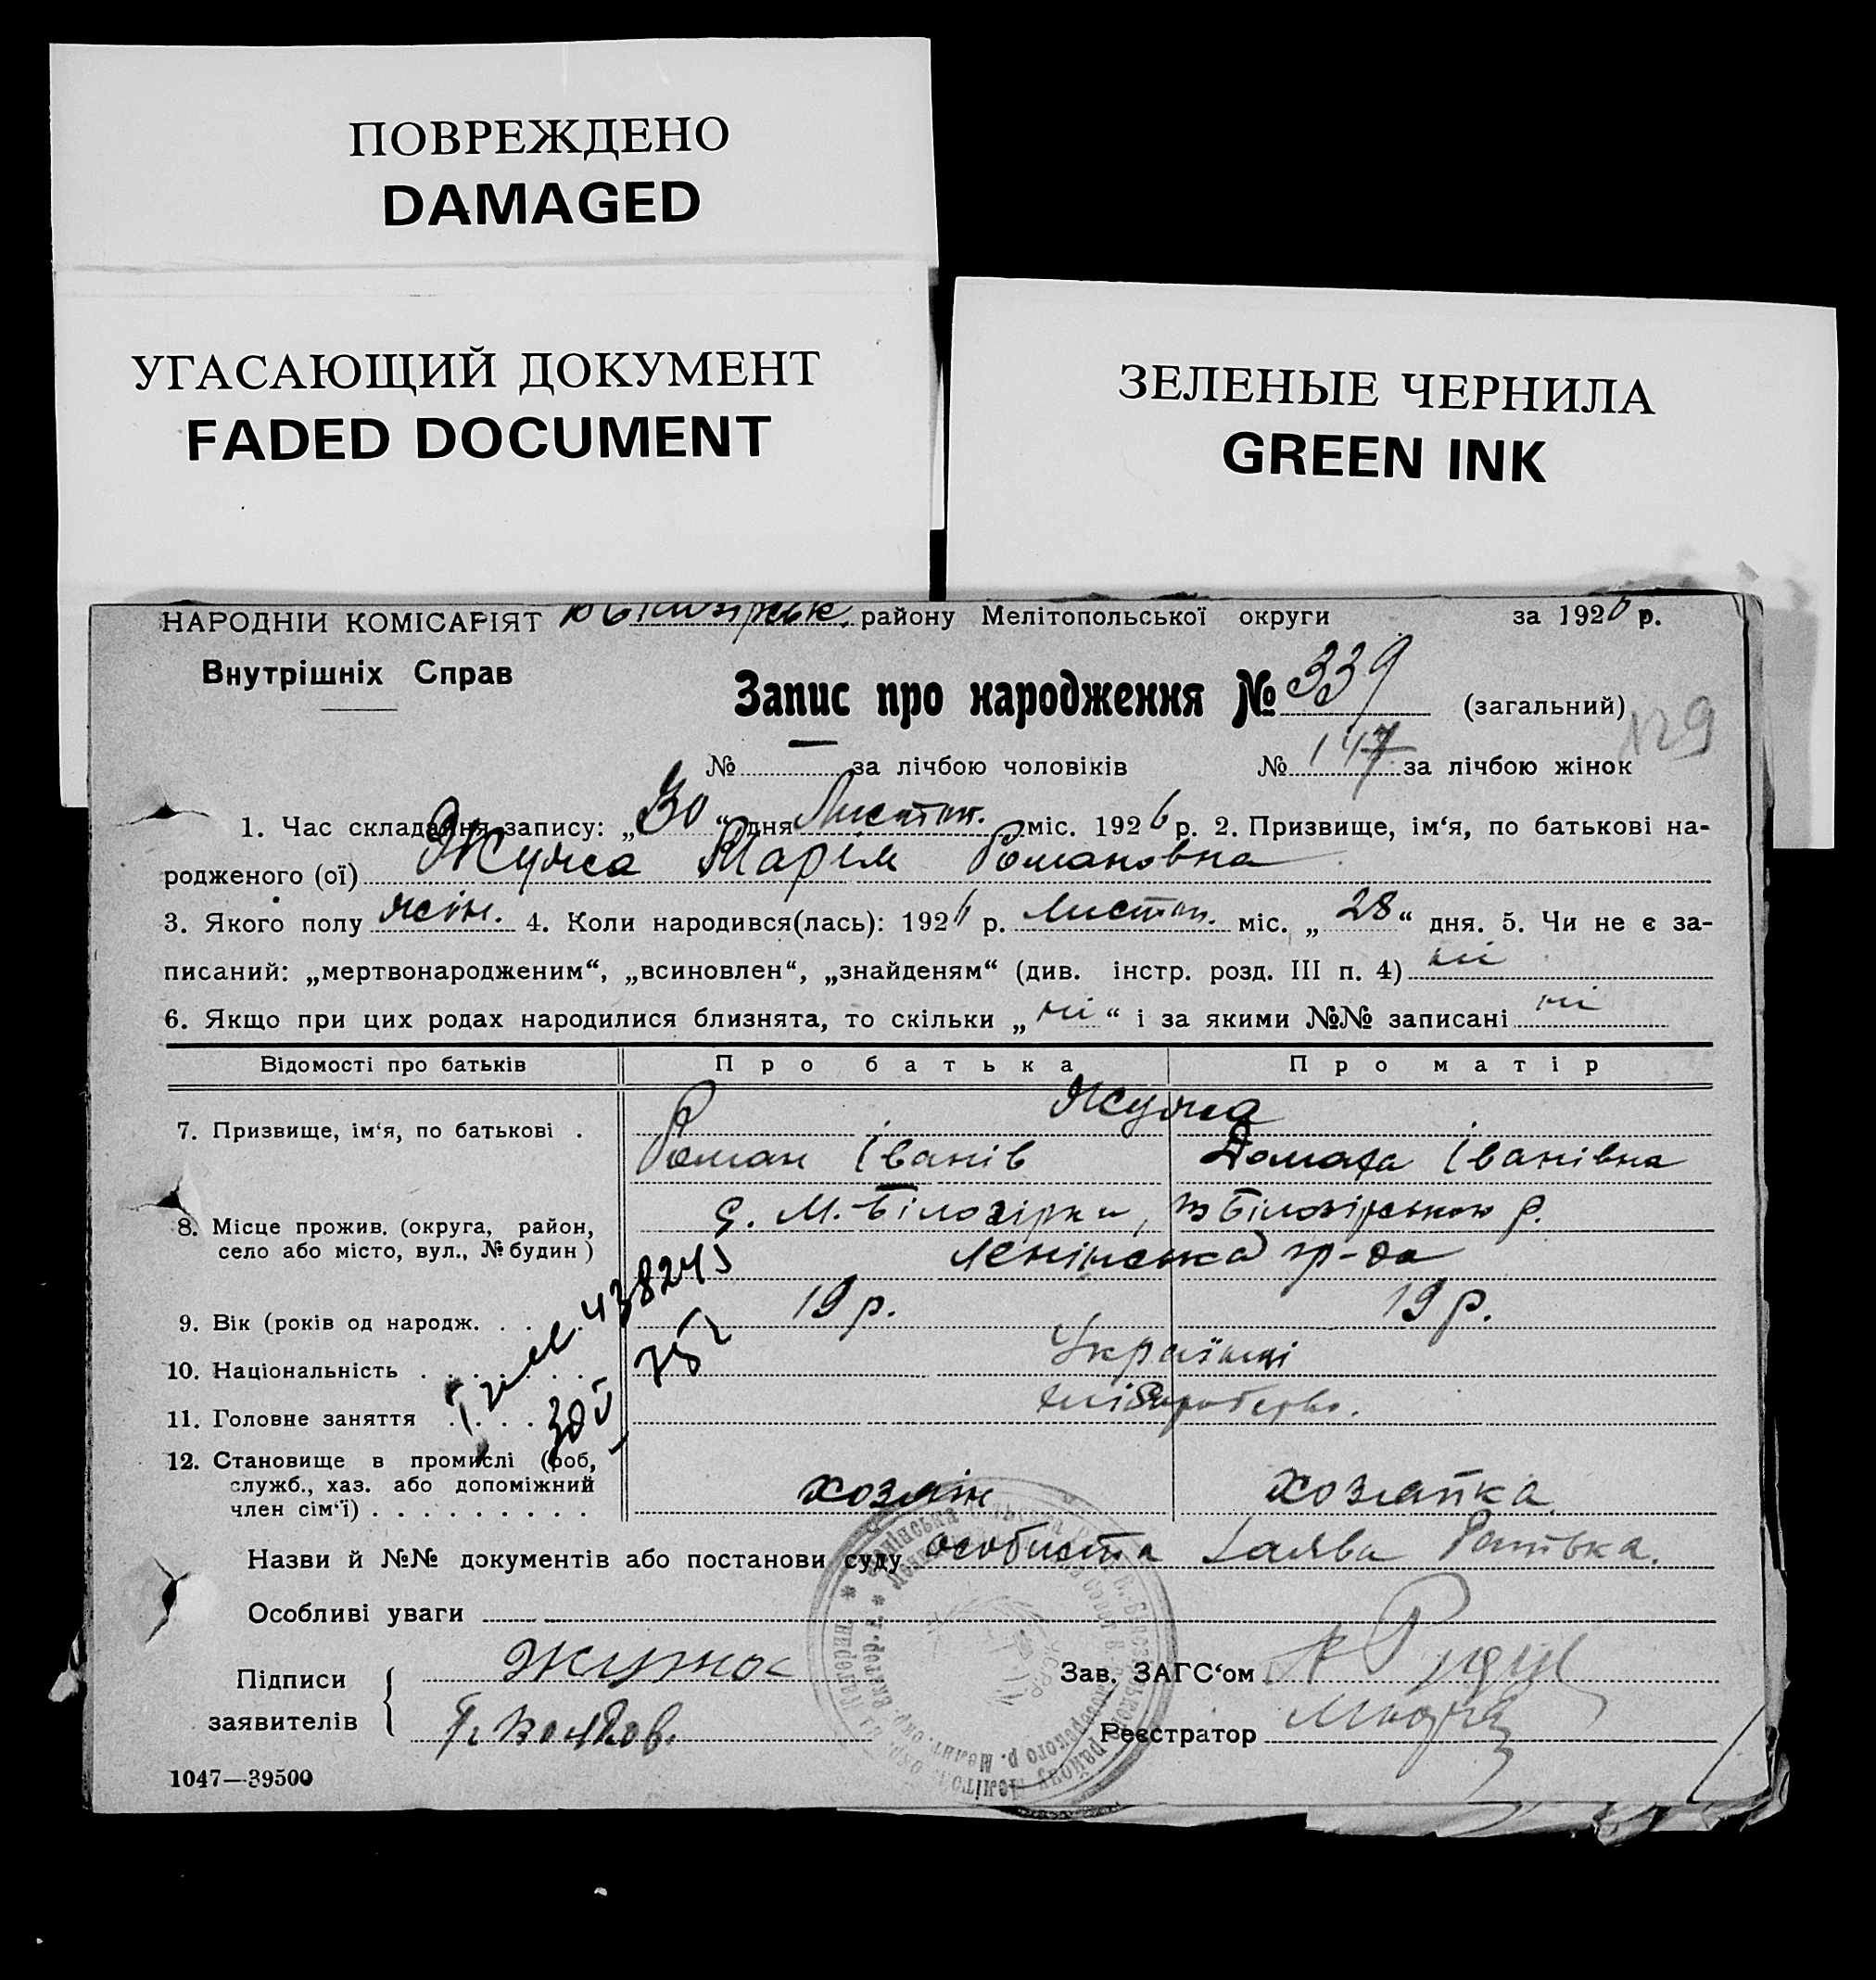 ПОВРЕЖДЕНО
DAMAGED
УГАСАЮЩИЙ ДОКУМЕНТ
FADED DOCUMENT
ЗЕЛЕНЫЕ ЧЕРНИЛА
GREEN INK
НАРОДНІЙ КОМІСАРІЯТ району Мелітопольської округи за 1926 р.
Внутрішніх Справ
Запис про народження № 339 (загальний)
129
№ — за лічбою чоловіків № 147 за лічбою жінок
1. Час складання запису: „30“ дня Листоп. міс. 1926 р. 2. Призвище, ім‘я, по батькові на-
родженого (ої) Марія Романовна
3. Якого полу жін. 4. Коли народився(лась): 1926 р. Листоп. міс. „28“ дня. 5. Чи не є за-
писаний: „мертвонародженим“, „всиновлен“, „знайденям“ (див. інстр. розд. III п. 4) ні
6. Якщо при цих родах народилися близнята, то скільки „ні“ і за якими №№ записані ні
Відомості про батьків Про батька Про матір
7. Призвище, ім‘я, по батькові .
Роман Іванів Домаха Іванівна
8. Місце прожив. (округа, район, с. М.-Білозірки, В Білозірського р.
село або місто, вул., № будин) Ленінська гр-да
9. Вік (років од народж. . . . 19 р. 19 р.
10. Національність . . . . . Українці
11. Головне заняття . . . . хліборобство.
438245
12. Становище в промислі (роб,
служб., хаз. або допоміжний
член сім‘ї) . . . . . . . . . хозяїн хозяйка
Назви й №№ документів або постанови суду особиста заява батька.
Особливі уваги
Підписи Зав. ЗАГС‘ом
заявителів
Реєстратор
1047—39500